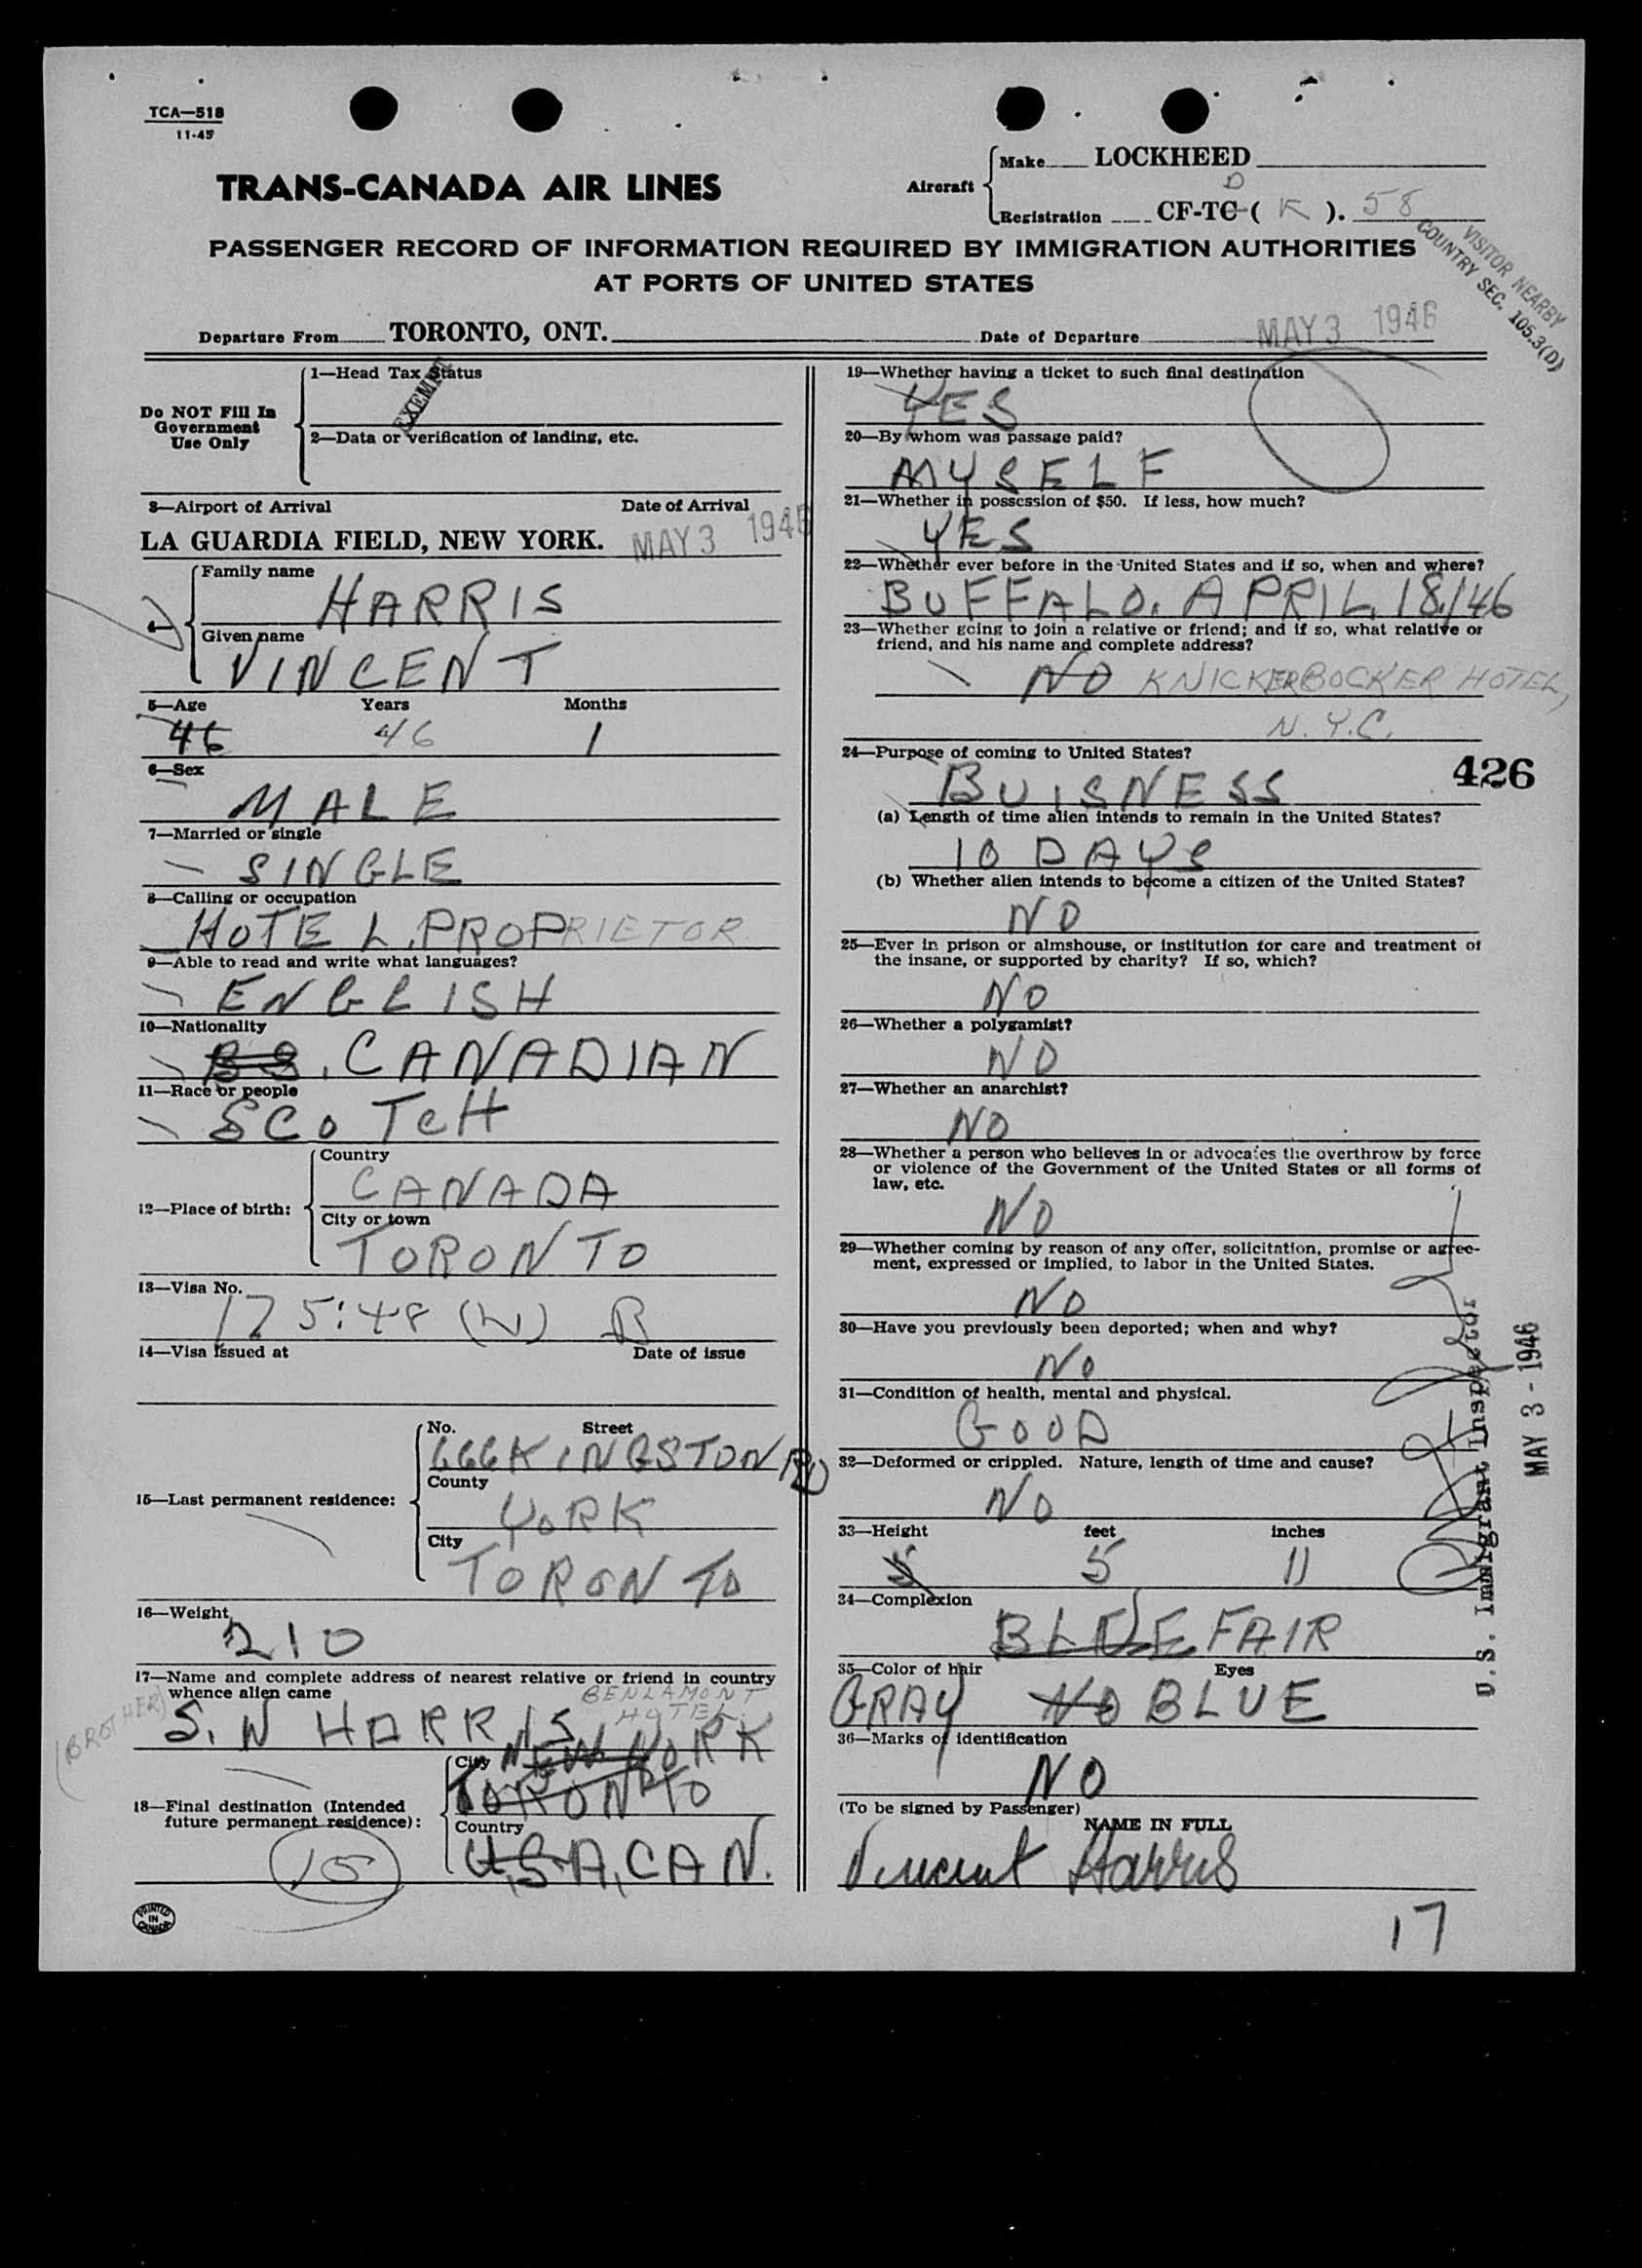 TCA—518
11-45
TRANS-CANADA AIR LINES
Aircraft
Make LOCKHEED
D
Registration CF-TC (K). 58
VISITOR NEARBY
COUNTRY SEC. 105.3(D)
PASSENGER RECORD OF INFORMATION REQUIRED BY IMMIGRATION AUTHORITIES
AT PORTS OF UNITED STATES
Departure From TORONTO, ONT. Date of Departure MAY 3 1946
Do NOT Fill In
Government
Use Only
1—Head Tax Status
EXEMPT
2—Data or verification of landing, etc.
3—Airport of Arrival Date of Arrival
LA GUARDIA FIELD, NEW YORK. MAY 3 1946
4—
Family name
HARRIS
Given name
VINCENT
5—Age Years Months
46 46 1
6—Sex
MALE
7—Married or single
SINGLE
8—Calling or occupation
HOTEL. PROPRIETOR
9—Able to read and write what languages?
ENGLISH
10—Nationality
BS. CANADIAN
11—Race or people
SCOTCH
12—Place of birth:
Country
CANADA
City or town
TORONTO
13—Visa No.
175:48 (W) R
14—Visa Issued at Date of issue
15—Last permanent residence:
No. Street
666 KINGSTON RD
County
YORK
City
TORONTO
16—Weight
210
17—Name and complete address of nearest relative or friend in country
whence alien came
BENLAMONT
HOTEL
(BROTHER) S. W HARRIS
18—Final destination (Intended
future permanent residence):
City NEW YORK
TORONTO
Country
U.S.A, CAN.
15
PRINTED
IN
CANADA
19—Whether having a ticket to such final destination
YES
20—By whom was passage paid?
MYSELF
21—Whether in possession of $50. If less, how much?
YES
22—Whether ever before in the United States and if so, when and where?
BUFFALO. APRIL. 18./46
23—Whether going to join a relative or friend; and if so, what relative or
friend, and his name and complete address?
NO KNICKERBOCKER HOTEL,
N.Y.C.
24—Purpose of coming to United States?
BUISNESS
426
(a) Length of time alien intends to remain in the United States?
10 DAYS
(b) Whether alien intends to become a citizen of the United States?
NO
25—Ever in prison or almshouse, or institution for care and treatment of
the insane, or supported by charity? If so, which?
NO
26—Whether a polygamist?
NO
27—Whether an anarchist?
NO
28—Whether a person who believes in or advocates the overthrow by force
or violence of the Government of the United States or all forms of
law, etc.
NO
29—Whether coming by reason of any offer, solicitation, promise or agree-
ment, expressed or implied, to labor in the United States.
NO
30—Have you previously been deported; when and why?
NO
31—Condition of health, mental and physical.
GOOD
32—Deformed or crippled. Nature, length of time and cause?
NO
33—Height feet inches
5 5 11
34—Complexion
BLUE FAIR
35—Color of hair Eyes
GRAY NO BLUE
36—Marks of identification
NO
(To be signed by Passenger)
NAME IN FULL
Vincent Harris
U.S. Immigrant Inspector
MAY 3 - 1946
17